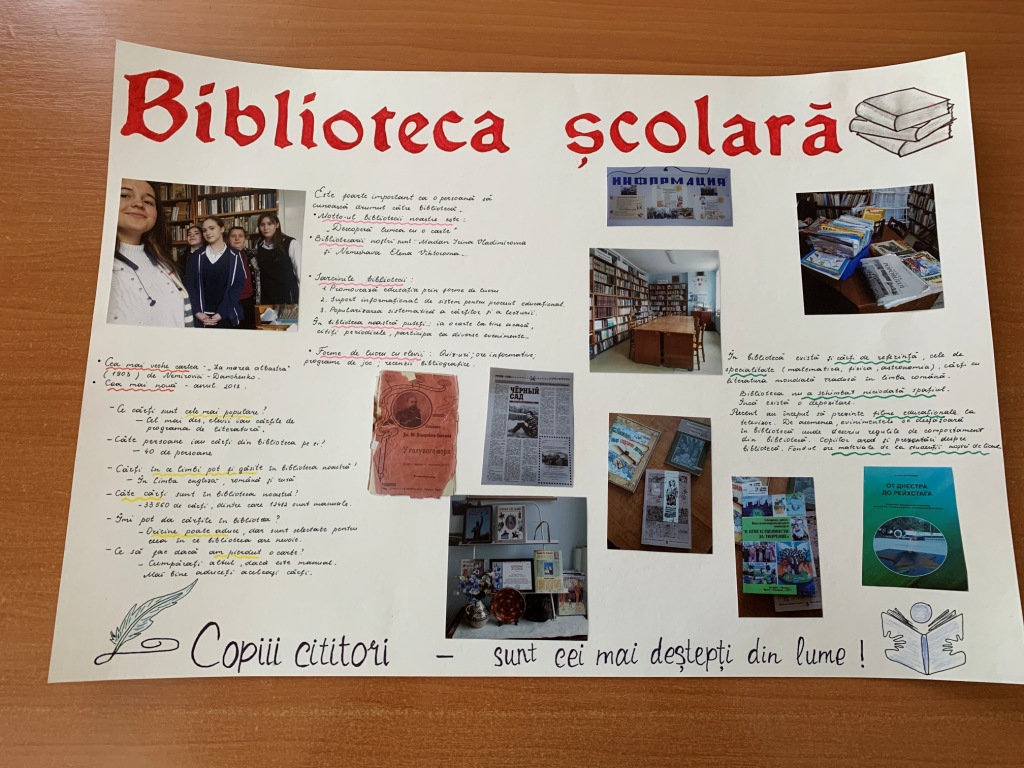 Biblioteca școlară
Este foarte important ca o persoană să
cunoască drumul către bibliotecă.
• Motto-ul bibliotecii noastre este:
„Descoperă lumea cu o carte"
• Bibliotecarii noștri sunt: Madan Irina Vladimirovna
și Elena Viktorovna.
• Sarcinile bibliotecii:
1. Promovează educația prin forme de lucru
2. Suport informațional de sistem pentru procesul educațional.
3. Popularizarea sistematică a cărților și a lecturii.
În biblioteca noastră puteți: ia o carte la tine acasă,
citiți periodicele, participa la diverse evenimente.
• Forme de lucru cu elevii: Quiz-uri; ore informative,
programe de joc, recenzii bibliografice.
• Cea mai veche cartea - „La marea albastră"
(1903) de Nemirovia - Danchenko.
• Cea mai nouă - anul 2018.
- Ce cărți sunt cele mai populare?
- Cel mai des, elevii iau cărțile de
programa de literatură.
- Câte persoane iau cărți din biblioteca pe zi?
- 40 de persoane
- Cărți în ce limbi pot fi găsite în biblioteca noastră?
- În limba engleza, română și rusă
- Câte cărți sunt în biblioteca noastră?
- de cărți, dintre care manuale.
- Îmi pot da cărțile în bibliotea?
- Oricine poate aduce, dar sunt selectate pentru
ceea în ce biblioteca are nevoie.
- Ce să fac dacă am pierdut o carte?
- Cumpărați altul, dacă este manual.
Mai bine aduceți aceleași cărți.
ИНФОРМАЦИЯ
У голубого моря
ЧЁРНЫЙ
САД
В ОТВЕТСТВЕННОСТИ
ЗА ТВОРЕНИЕ
ОТ ДНЕСТРА
ДО РЕЙХСТАГА
În bibliotecă există și cărți de referință, cele de
specialitate (matematica, fizica, astronomia), cărți cu
literatura mondială tradusă în limba română.
Biblioteca nu a schimbat niciodată spațiul.
Încă există o depozitare.
Recent au început să prezinte filme educaționale la
televizor. De asemenea, evenimentele se desfășoară
în bibliotecă unde descriu regulile de comportament
din bibliotecă. Copiilor arad și prezentări despre
bibliotecă. Fondul are materiale de la studenții noștri de liceu.
Copiii cititori – sunt cei mai deștepți din lume!